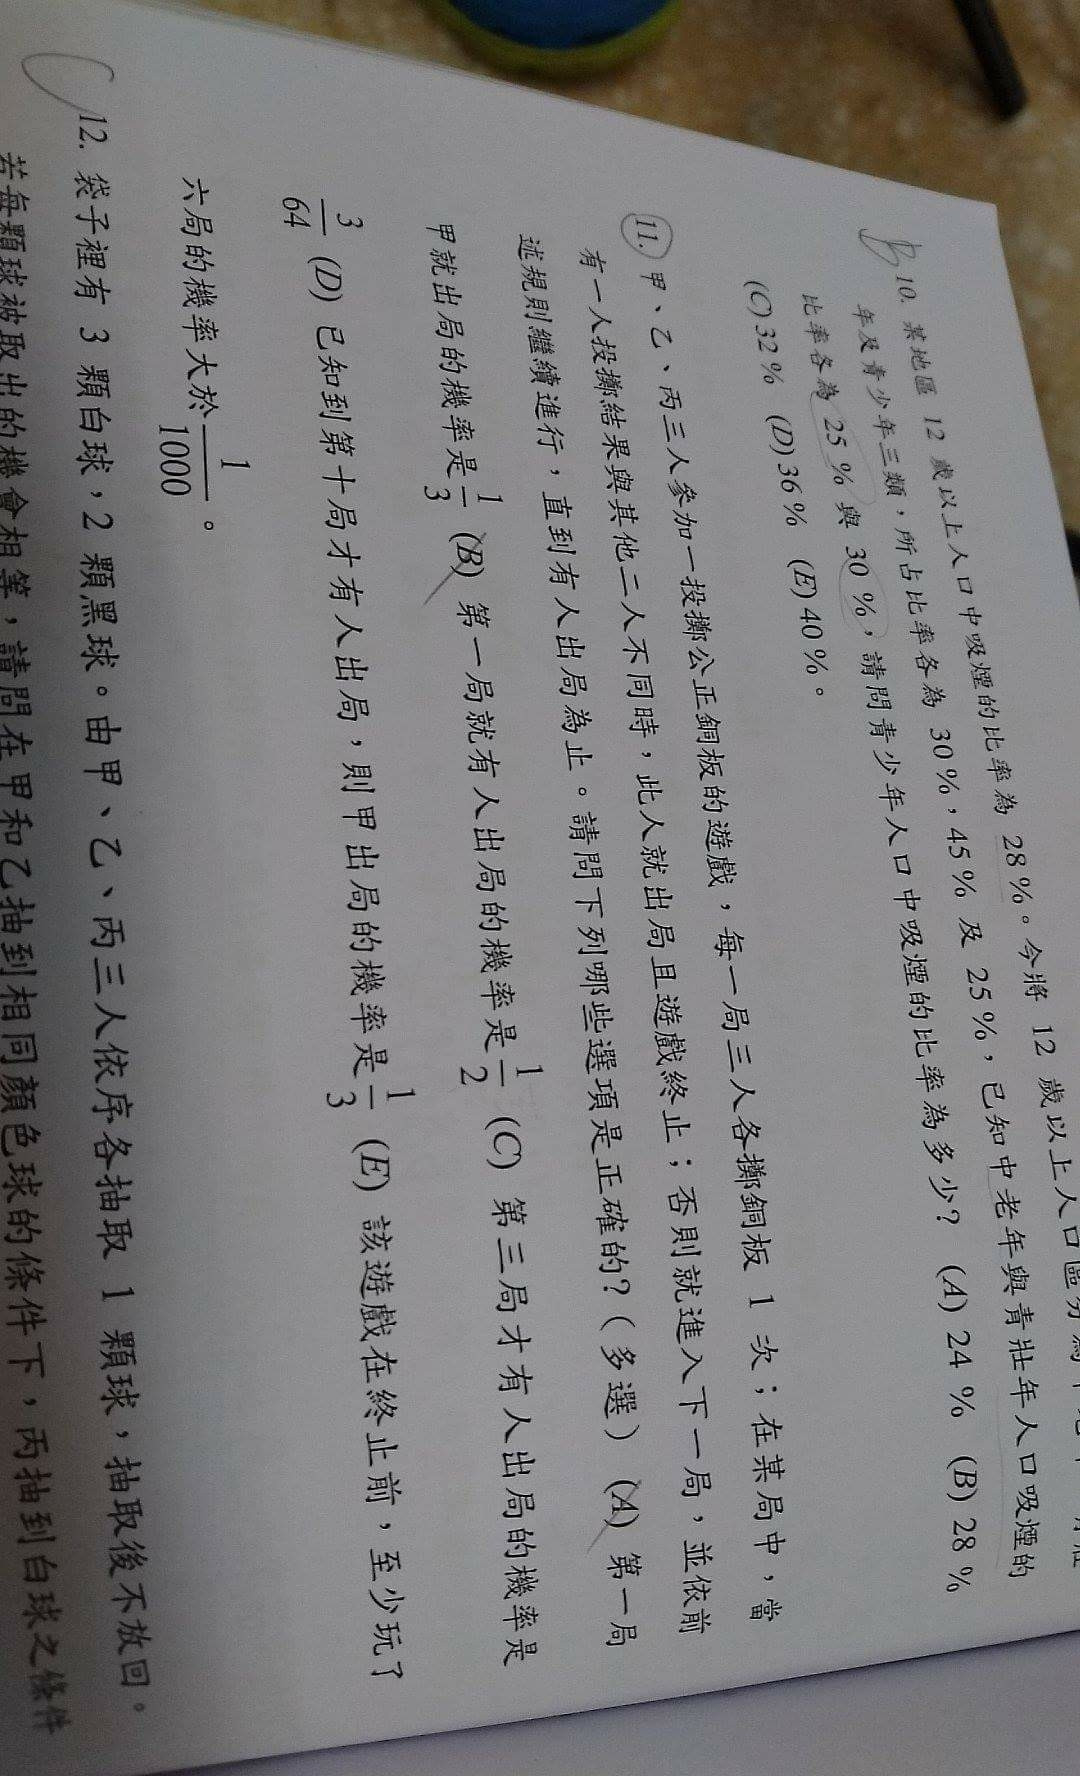 10. 某地區 12 歲以上人口中吸煙的比率為 28%。今將 12 歲以上人口區分為
年及青少年三類，所占比率各為 30%，45% 及 25%，已知中老年與青壯年人口吸煙的
比率各為 25% 與 30%，請問青少年人口中吸煙的比率為多少？ (A) 24 % (B) 28 %
(C) 32% (D) 36% (E) 40%。
11. 甲、乙、丙三人參加一投擲公正銅板的遊戲，每一局三人各擲銅板 1 次；在某局中，當
有一人投擲結果與其他二人不同時，此人就出局且遊戲終止；否則就進入下一局，並依前
述規則繼續進行，直到有人出局為止。請問下列哪些選項是正確的？（多選） (A) 第一局
甲就出局的機率是 1/3 (B) 第一局就有人出局的機率是 1/2 (C) 第三局才有人出局的機率是
3/64 (D) 已知到第十局才有人出局，則甲出局的機率是 1/3 (E) 該遊戲在終止前，至少玩了
六局的機率大於 1/1000。
12. 袋子裡有 3 顆白球，2 顆黑球。由甲、乙、丙三人依序各抽取 1 顆球，抽取後不放回。
若每顆球被取出的機會相等，請問在甲和乙抽到相同顏色球的條件下，丙抽到白球之條件